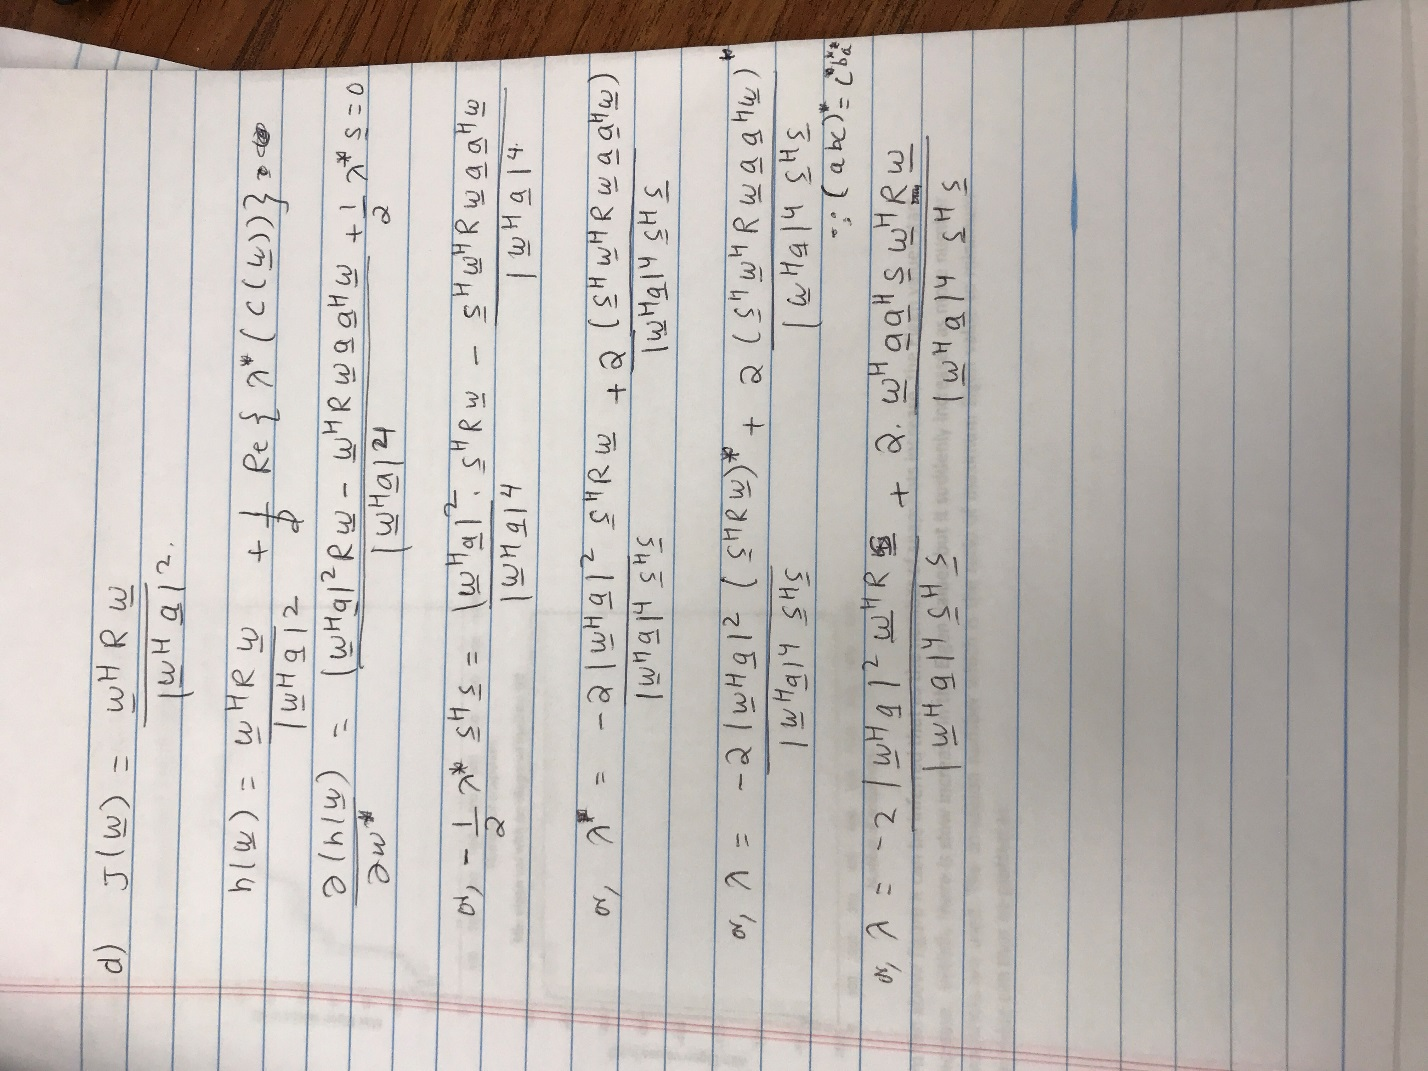 d) J(w) = w^H R w / |w^H a|^2.
h(w) = w^H R w / |w^H a|^2 + 1/2 Re{ λ* (c(w)) }
∂(h(w)) / ∂w* = (|w^H a|^2 R w - w^H R w a a^H w) / |w^H a|^4 + 1/2 λ* s = 0
or, -1/2 λ* s^H s = |w^H a|^2 . s^H R w / |w^H a|^4 - s^H w^H R w a a^H w / |w^H a|^4.
or, λ* = -2 |w^H a|^2 s^H R w / |w^H a|^4 s^H s + 2 (s^H w^H R w a a^H w) / |w^H a|^4 s^H s
or, λ = -2 |w^H a|^2 (s^H R w)* / |w^H a|^4 s^H s + 2 (s^H w^H R w a a^H w)* / |w^H a|^4 s^H s
∵ (abc)* = c* b* a*
or, λ = -2 |w^H a|^2 w^H R s / |w^H a|^4 s^H s + 2. w^H a a^H s w^H R w / |w^H a|^4 s^H s